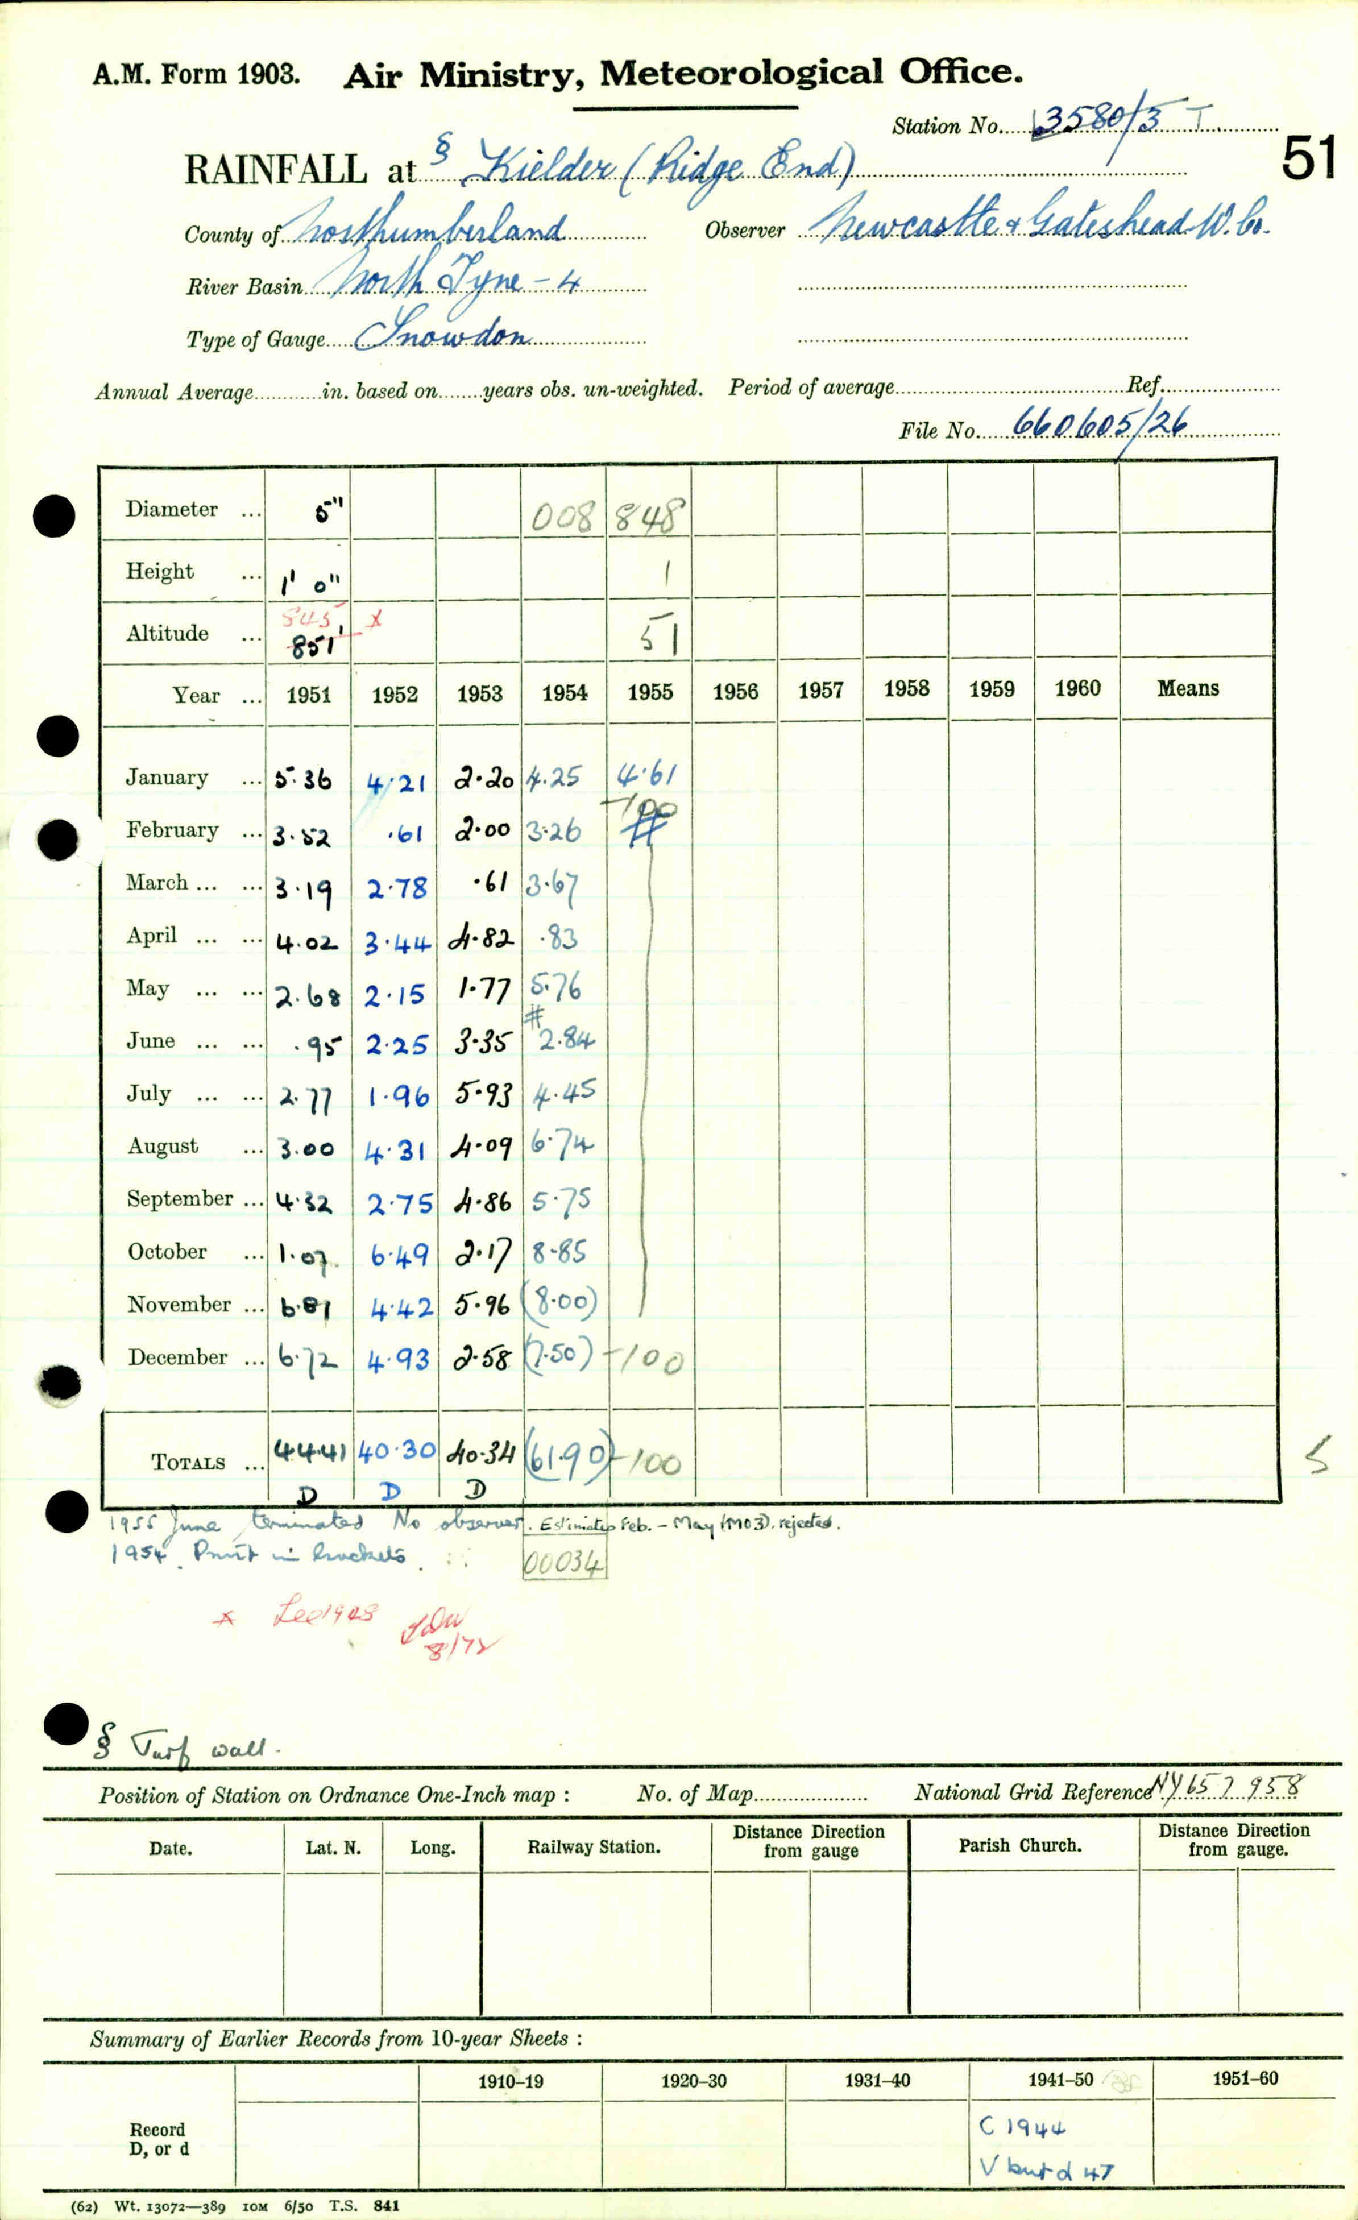 A.M. Form 1903. Air Ministry, Meteorological Office.
Station No. 3580/3 T.
51
RAINFALL at § Kielder (Ridge End)
County of Northumberland Observer Newcastle & Gateshead W. Co.
River Basin North Tyne - 4
Type of Gauge Snowdon
Annual Average in. based on years obs. un-weighted. Period of average Ref.
File No. 660605/26
Diameter ... 5" 008 848
Height ... 1' 0" 1
845 x
Altitude ... 851' 51
Year ... 1951 1952 1953 1954 1955 1956 1957 1958 1959 1960 Means
January ... 5.36 4.21 2.20 4.25 4.61
-100
February ... 3.52 .61 2.00 3.26 #
March ... ... 3.19 2.78 .61 3.67
April ... ... 4.02 3.44 4.82 .83
May ... ... 2.68 2.15 1.77 5.76
#
June ... ... .95 2.25 3.35 2.84
July ... ... 2.77 1.96 5.93 4.45
August ... 3.00 4.31 4.09 6.74
September ... 4.32 2.75 4.86 5.75
October ... 1.07 6.49 2.17 8.85
November ... 6.81 4.42 5.96 (8.00)
December ... 6.72 4.93 2.58 (7.50) -100
TOTALS ... 44.41 40.30 40.34 (61.90) -100
D D D
1955 June terminated No observer. Estimates Feb. - May (MO3) rejected.
1954. Print in brackets.
00034
x See 1948
8/72
§ Turf wall.
Position of Station on Ordnance One-Inch map : No. of Map National Grid Reference NY 657 958
Date. Lat. N. Long. Railway Station. Distance from gauge Direction Parish Church. Distance from gauge. Direction
Summary of Earlier Records from 10-year Sheets :
1910-19 1920-30 1931-40 1941-50 1951-60
Record D, or d
C 1944
V but d 47
(62) Wt. 13072—389 10M 6/50 T.S. 841